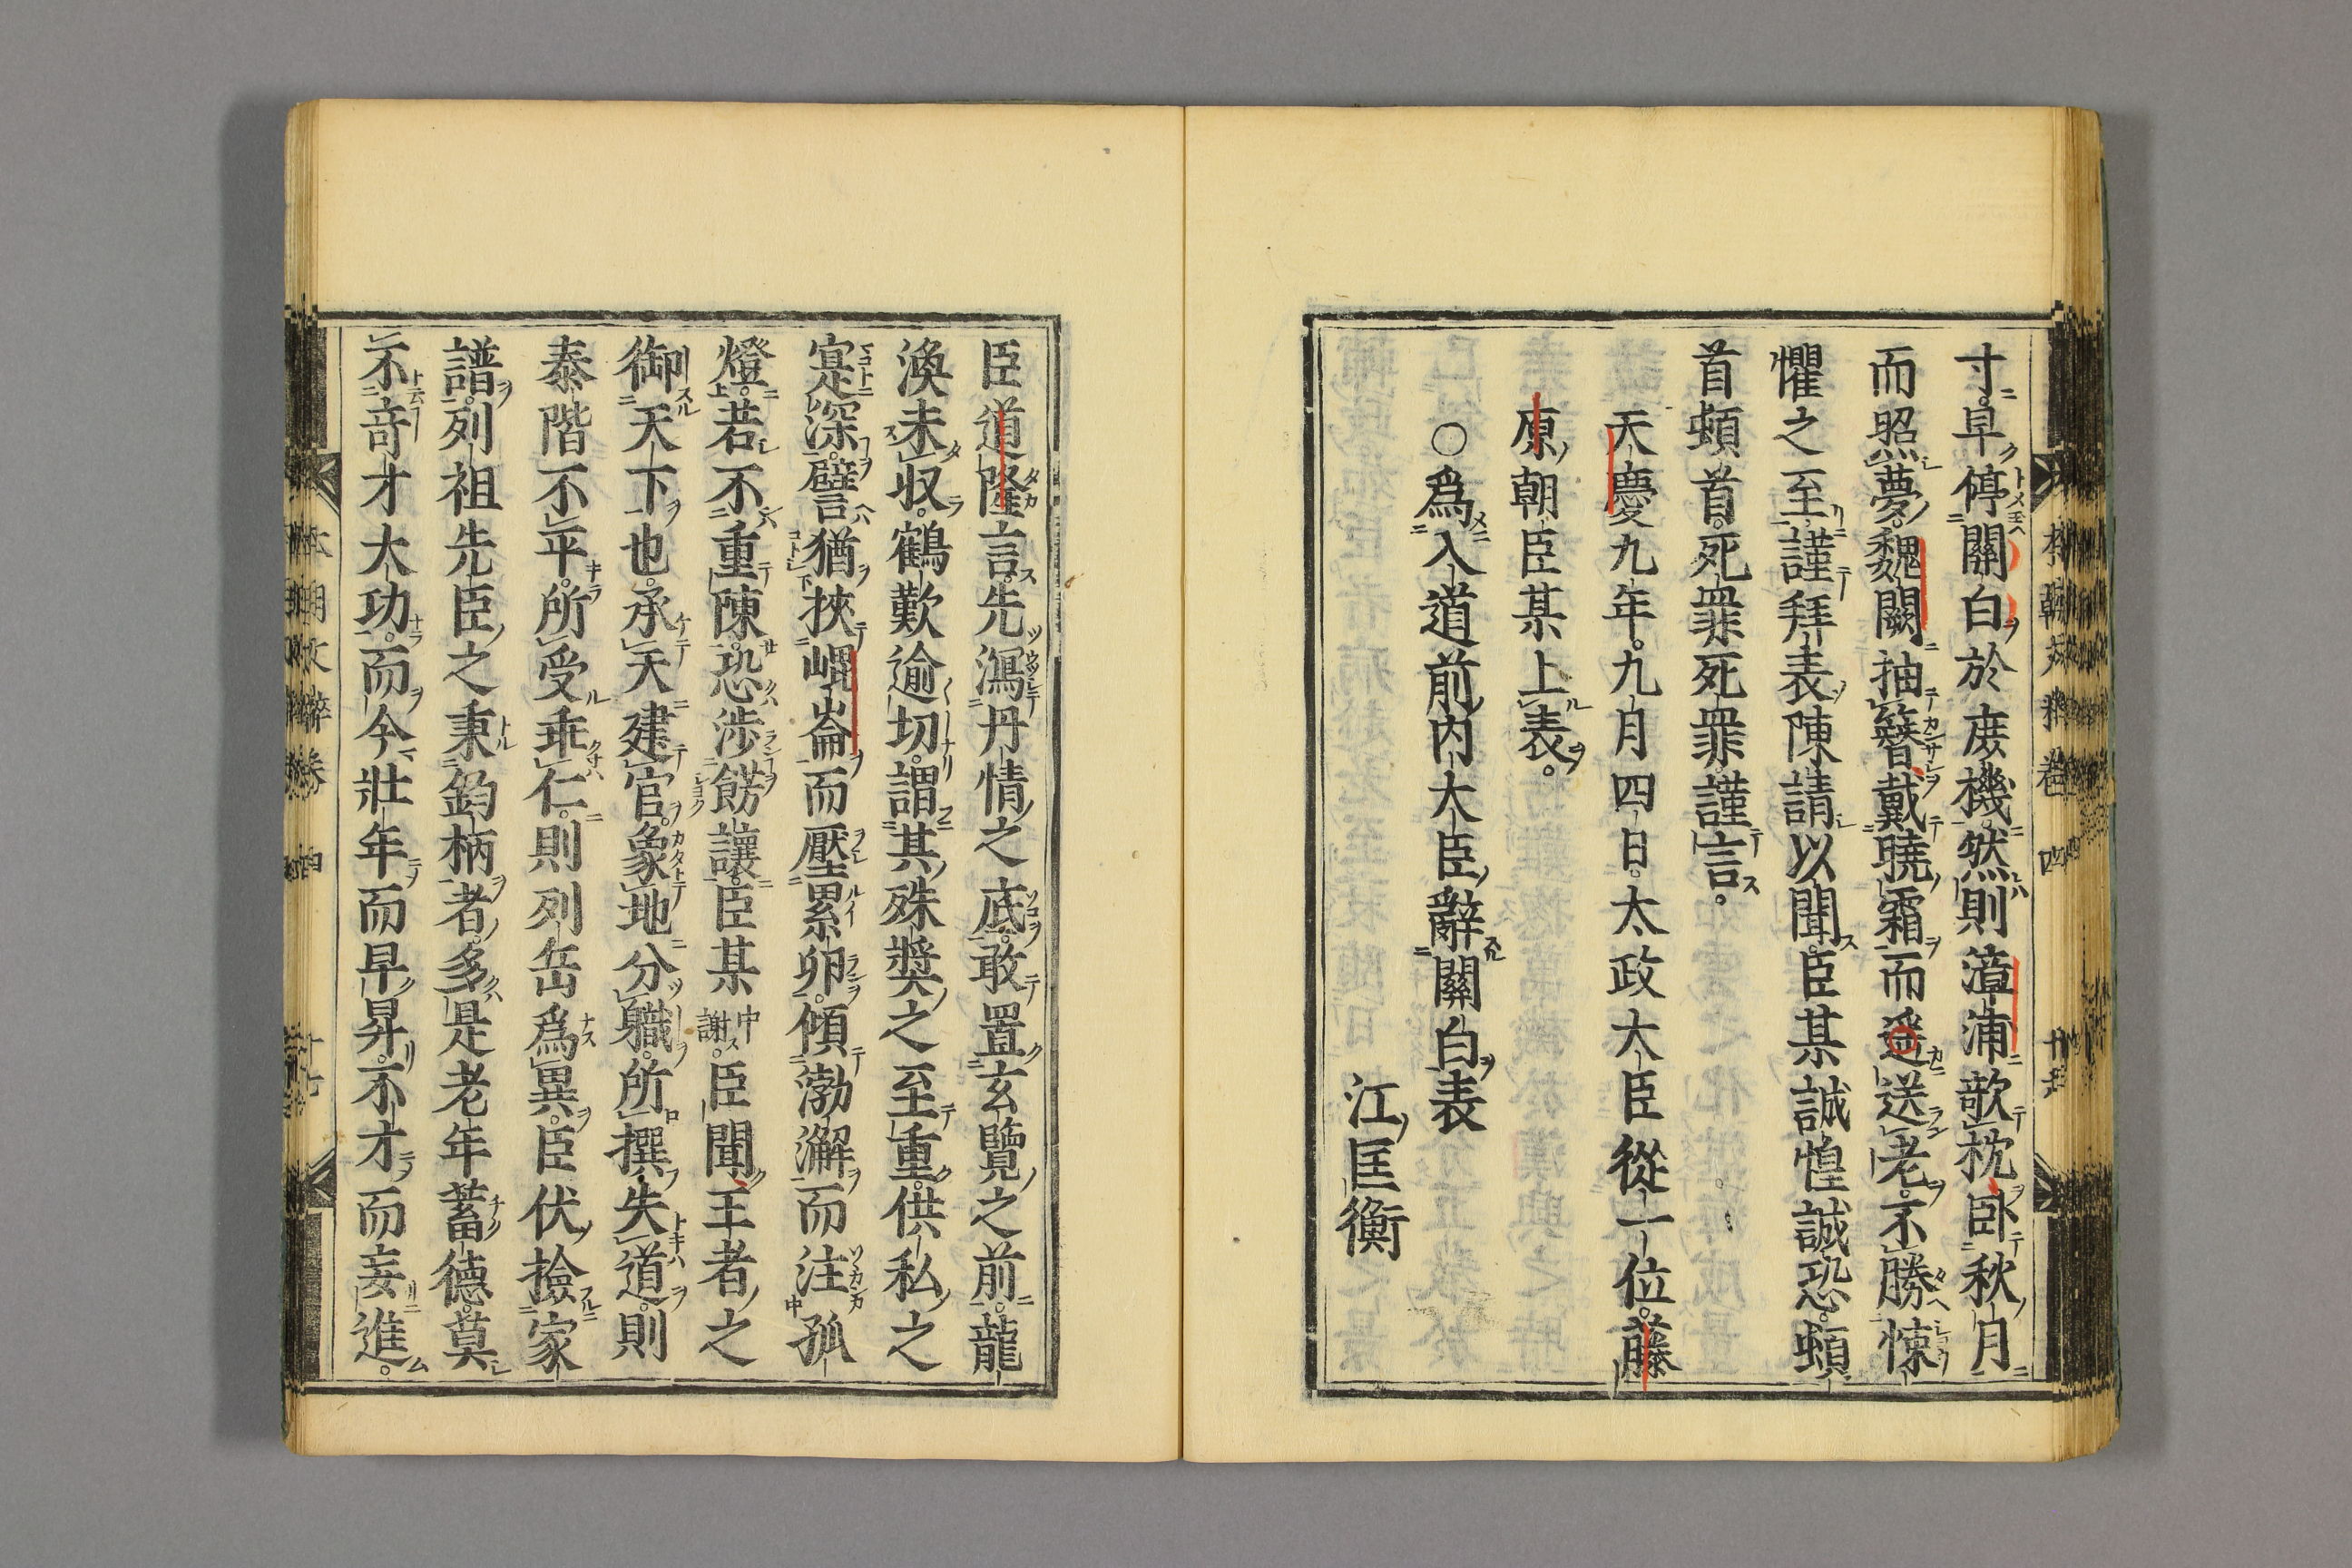 寸早停關白於庶機然則漳浦歌枕臥秋月
而照夢魏闕抽簪戴曉霜而遥送老不勝悚
懼之至謹拜表陳請以聞臣某誠惶誠恐頓
首頓首死罪死罪謹言
天慶九年九月四日太政大臣從一位藤
原朝臣某上表
○爲入道前内大臣辭關白表
江匡衡
臣道隆言先瀉丹情之底敢置玄覽之前龍
渙未収鶴歎逾切謂其殊奬之至重供私之
寔深譬猶挾崐崘而壓累卵傾渤澥而注孤
燈若不重陳恐涉餝讓臣某中謝臣聞王者之
御天下也承天建官象地分職所撰失道則
泰階不平所受乖仁則列岳爲異臣伏撿家
譜列祖先臣之秉鈞柄者多是老年蓄德莫
不竒才大功而今壯年而早昇不才而妄進